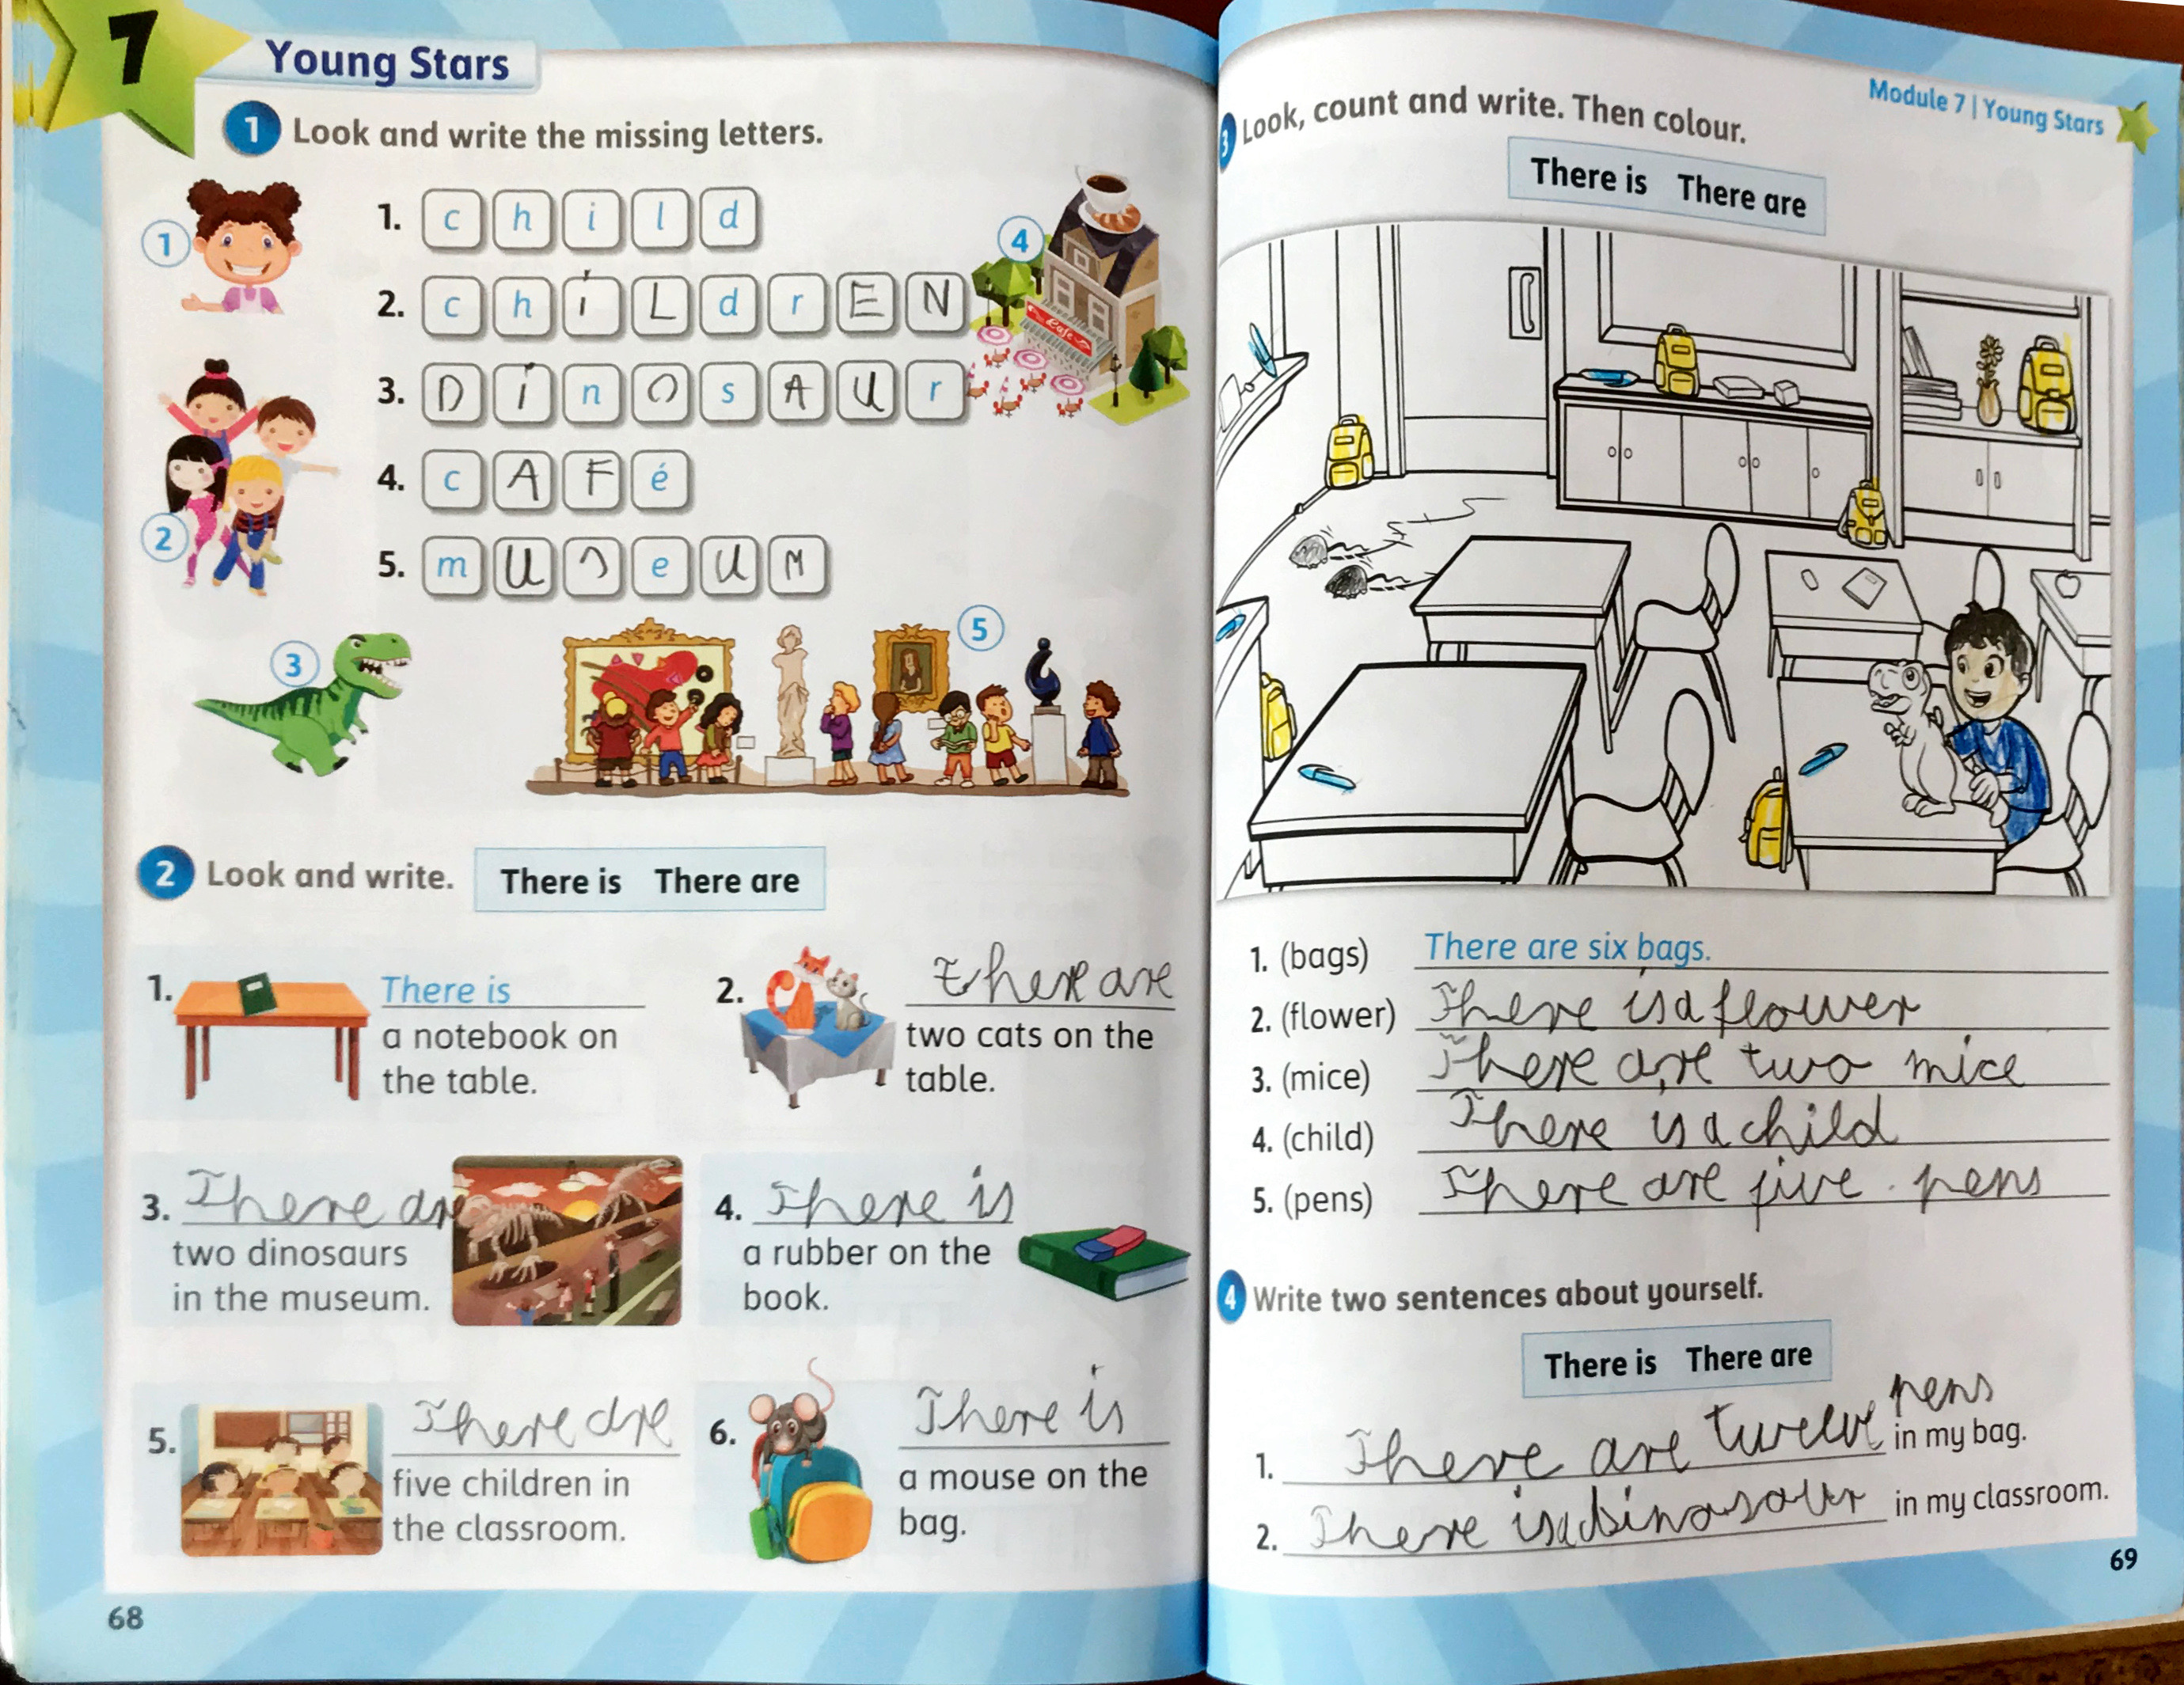 7
Young Stars
1 Look and write the missing letters.
1
1. c h i l d
4
2. c h i L d r E N
Cafe
3. D i n O s A U r
4. c A F é
2
5. m U S e U M
3
5
2 Look and write. There is There are
1. There is
a notebook on
the table.
2. there are
two cats on the
table.
3. There are
two dinosaurs
in the museum.
4. There is
a rubber on the
book.
5. There are
five children in
the classroom.
6. There is
a mouse on the
bag.
68
Module 7 | Young Stars
3 Look, count and write. Then colour.
There is There are
1. (bags) There are six bags.
2. (flower) There is a flower
3. (mice) There are two mice
4. (child) There is a child
5. (pens) There are five pens
4 Write two sentences about yourself.
There is There are
1. There are twelve pens in my bag.
2. There is a dinosaur in my classroom.
69